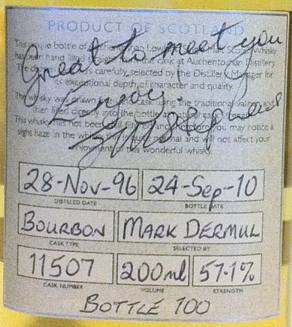 PRODUCT OF SCOTLAND
Great to meet you
bottle of Lowland Whisky
hand filled cask at Auchentoshan Distillery
carefully selected by the Distillery Manager for
its exceptional depth of character and quality.
whisky was drawn cask using the traditional
then filled directly into the bottle
This whisky has not been you may notice a
slight haze in the and will not affect your
enjoyment of this wonderful whisky.
28-Nov-96 24-Sep-10
DISTILLED DATE BOTTLE DATE
BOURBON MARK DERMUL
CASK TYPE SELECTED BY
11507 200ml 57.1%
CASK NUMBER VOLUME STRENGTH
BOTTLE 100